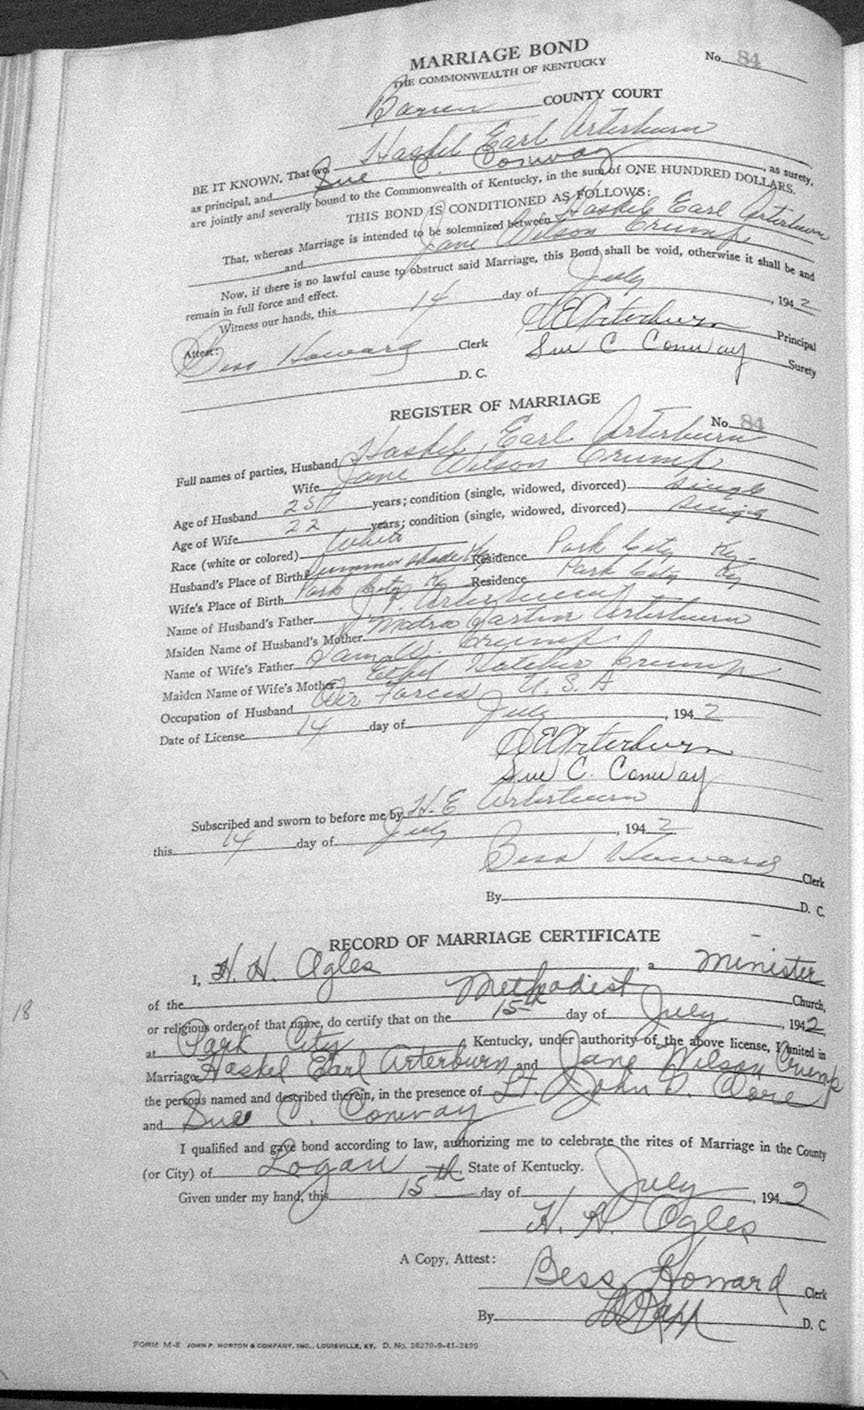 MARRIAGE BOND
No. 84
THE COMMONWEALTH OF KENTUCKY
Barren COUNTY COURT
BE IT KNOWN, That we, Haskel Earl Arterburn
as principal, and Sue C. Conway, as surety,
are jointly and severally bound to the Commonwealth of Kentucky, in the sum of ONE HUNDRED DOLLARS.
THIS BOND IS CONDITIONED AS FOLLOWS:
That, whereas Marriage is intended to be solemnized between Haskel Earl Arterburn
and Jane Wilson Crump
Now, if there is no lawful cause to obstruct said Marriage, this Bond shall be void, otherwise it shall be and
remain in full force and effect.
Witness our hands, this 14 day of July, 1942
H E Arterburn Principal
Attest: Bess Howard Clerk
Sue C Conway Surety
D. C.
REGISTER OF MARRIAGE
No. 84
Full names of parties, Husband Haskel Earl Arterburn
Wife Jane Wilson Crump
Age of Husband 25 years; condition (single, widowed, divorced) Single
Age of Wife 22 years; condition (single, widowed, divorced) Single
Race (white or colored) White
Husband's Place of Birth Summer Shade Ky Residence Park City Ky.
Wife's Place of Birth Park City Ky Residence Park City Ky
Name of Husband's Father J. P. Arterburn
Maiden Name of Husband's Mother Arterburn
Name of Wife's Father Sam W. Crump
Maiden Name of Wife's Mother Ethel Hatcher Crump
Occupation of Husband Air Forces U. S. A
Date of License 14 day of July, 1942
H E Arterburn
Sue C. Conway
Subscribed and sworn to before me by H. E Arterburn
this 14 day of July, 1942
Bess Howard Clerk
By D. C.
RECORD OF MARRIAGE CERTIFICATE
I, H. H. Ogles, a Minister
of the Methodist Church,
or religious order of that name, do certify that on the 15th day of July, 1942
at Park City Kentucky, under authority of the above license, I united in
Marriage Haskel Earl Arterburn and Jane Wilson Crump
the persons named and described therein, in the presence of Lt. John
and Sue C. Conway
I qualified and gave bond according to law, authorizing me to celebrate the rites of Marriage in the County
(or City) of Logan, State of Kentucky.
Given under my hand, this 15th day of July, 1942
H. H. Ogles
A Copy, Attest:
Bess Howard Clerk
By D. C.
18
FORM M-8 JOHN P. MORTON & COMPANY, INC., LOUISVILLE, KY. D. No. 26270-9-41-2400